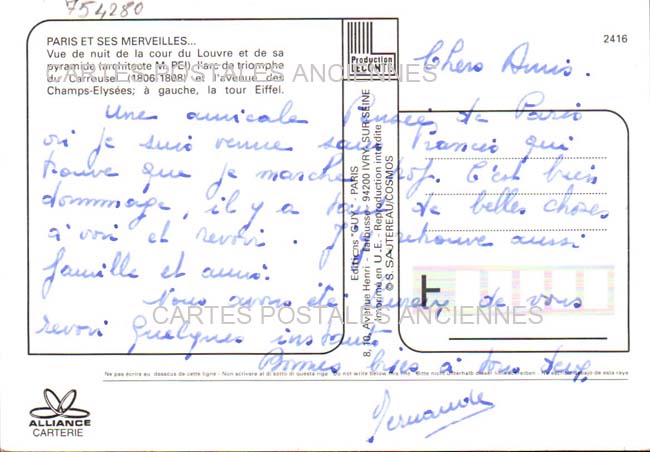 754280
PARIS ET SES MERVEILLES...
Vue de nuit de la cour du Louvre et de sa
pyramide (architecte M. PEI), l'arc de triomphe
du Carrousel (1806-1808) et l'avenue des
Champs-Elysées; à gauche, la tour Eiffel.
2416
Production
LECONTE
CARTES POSTALES ANCIENNES
Chers Amis.
Une amicale Pensée de Paris
où je suis venue sans Francis qui
trouve que je marche trop. C'est bien
dommage, il y a tant de belles choses
à voir et revoir. J'ai retrouvé aussi
famille et amis.
Nous avons été heureux de vous
revoir quelques instants.
Bonnes bises à tous deux,
Fernande
Editions "GUY" - PARIS
8, 10, Avenue Henri - Barbusse - 94200 IVRY-SUR-SEINE
Imprimé en U.E. - Reproduction interdite
© S. SAUTEREAU/COSMOS
T
CARTES POSTALES ANCIENNES
Ne pas écrire au dessous de cette ligne - Non scrivere al di sotto di questa riga - Do not write below
ALLIANCE
CARTERIE